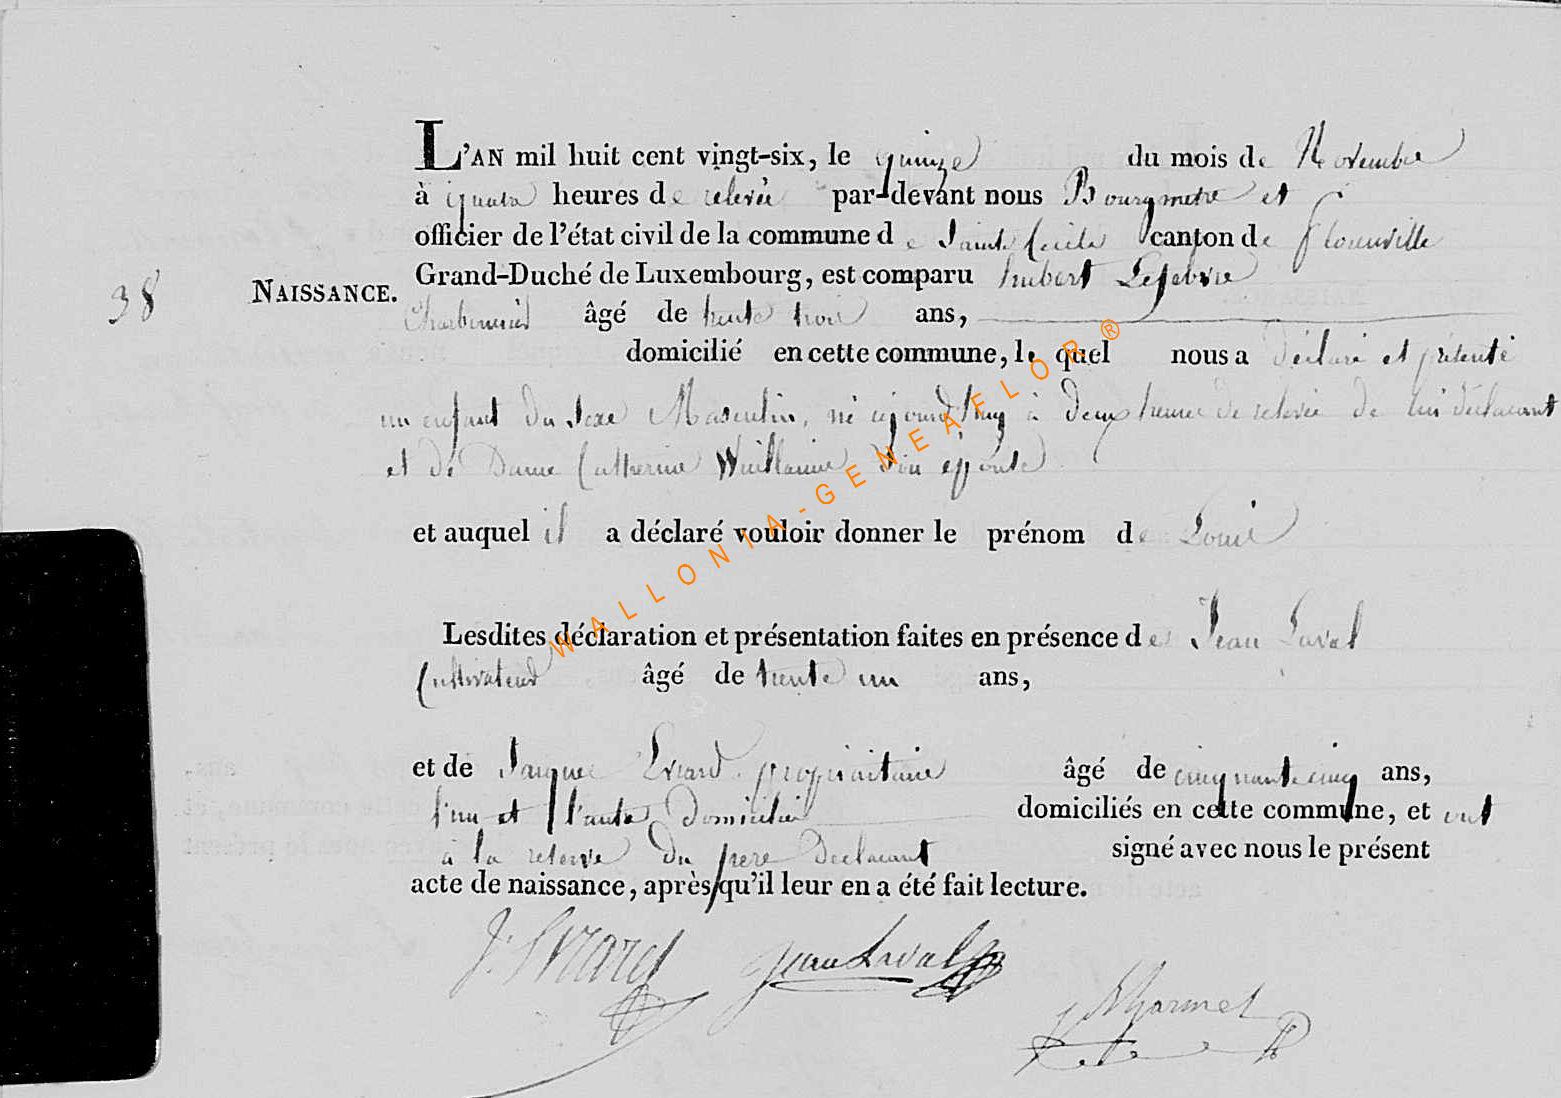 L'AN mil huit cent vingt-six, le quinze du mois de Novembre
à quatre heures de relevée par-devant nous Bourgmetre et
officier de l'état civil de la commune de Sainte Cecile canton de Florenville
Grand-Duché de Luxembourg, est comparu hubert Lefebvre
38 NAISSANCE.
Charbonnier âgé de trente trois ans,
domicilié en cette commune, le quel nous a déclaré et présenté
un enfant du sexe Masculin, né cejourd'huy à deux heures de relevée de lui déclarant
et de Dame Catherine Wuillaume son épouse
et auquel il a déclaré vouloir donner le prénom de Louis
Lesdites déclaration et présentation faites en présence de Jean Laval
Cultivateur âgé de trente un ans,
et de Jacques Evrard propriaitaire âgé de cinquante cinq ans,
l'un et l'autre domicilié domiciliés en cette commune, et ont
à la reserve du pere declarant signé avec nous le présent
acte de naissance, après qu'il leur en a été fait lecture.
J. Evrard Jean Laval
WALLONIA-GENEAFLOR ®